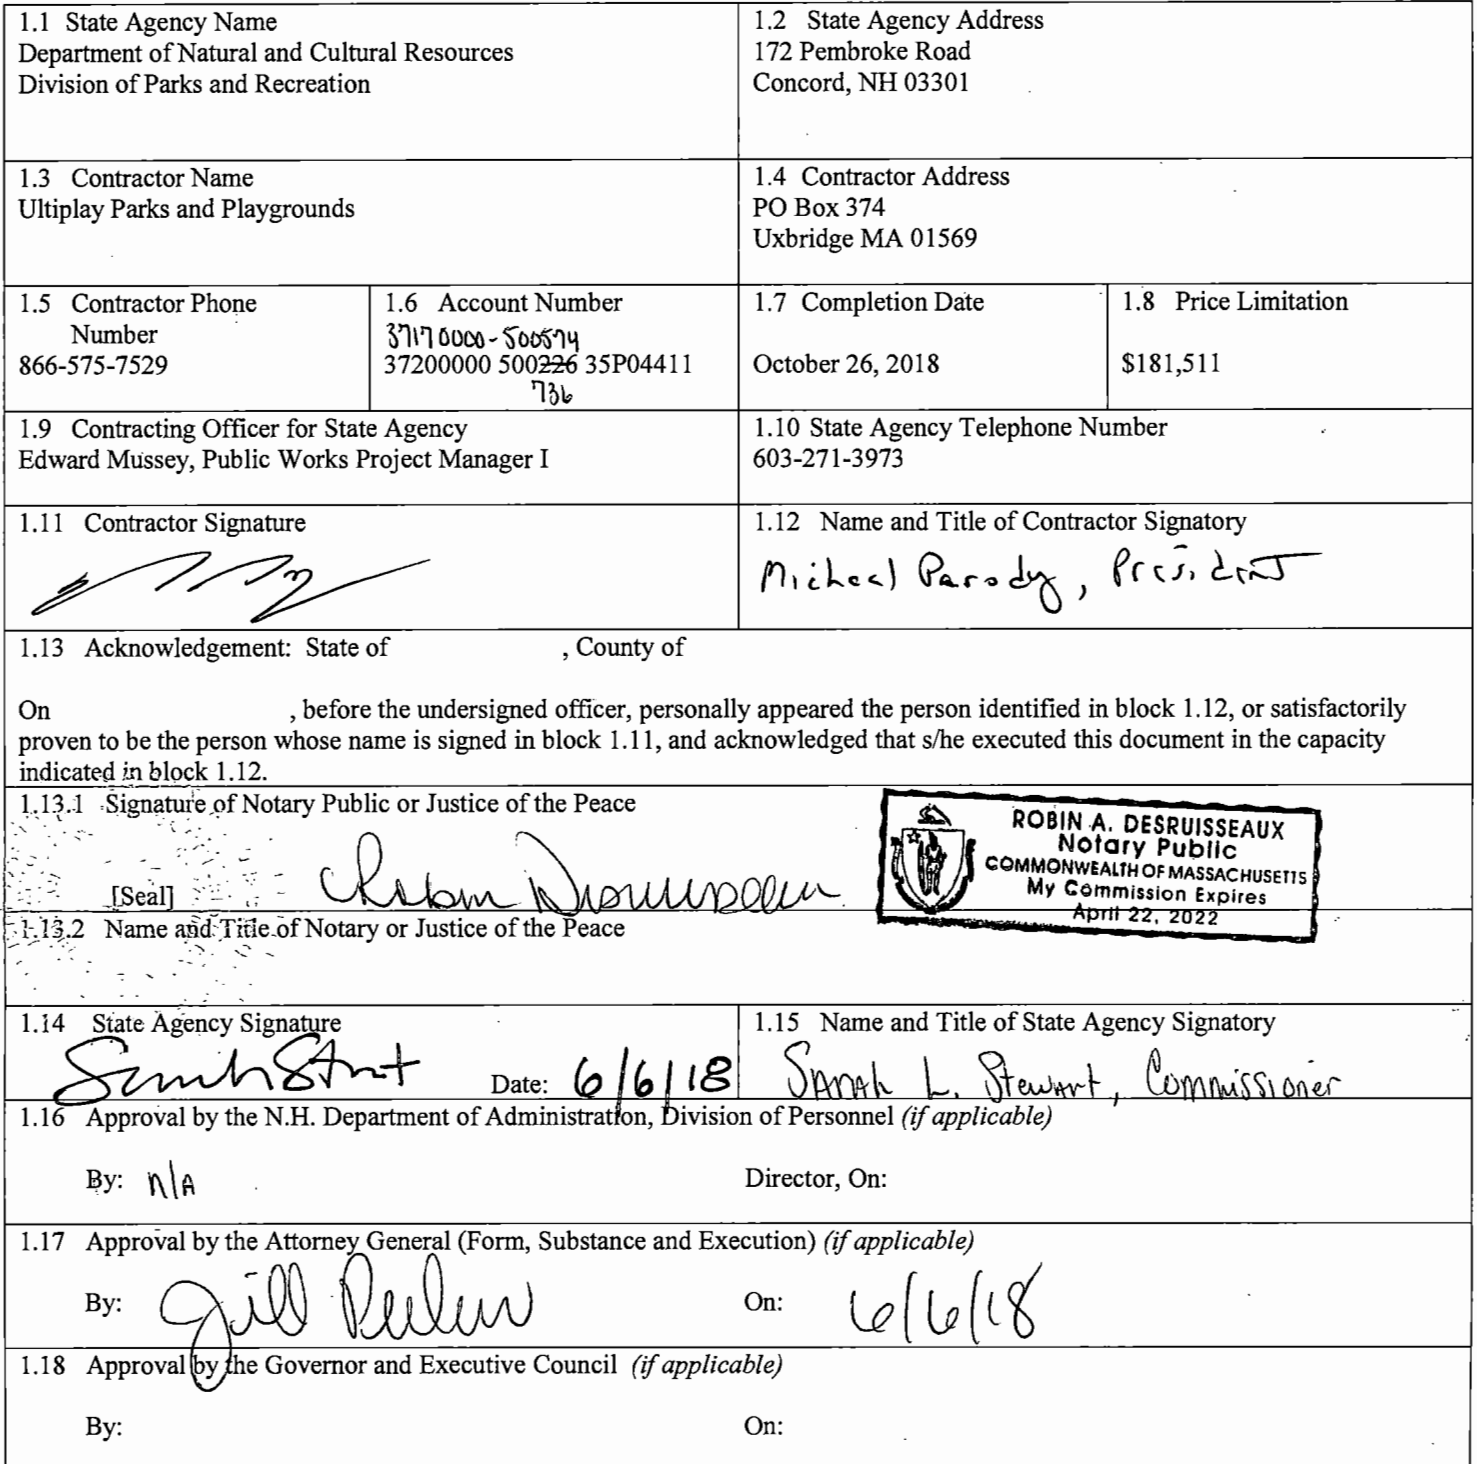 1.1 State Agency Name
Department of Natural and Cultural Resources
Division of Parks and Recreation
1.2 State Agency Address
172 Pembroke Road
Concord, NH 03301
1.3 Contractor Name
Ultiplay Parks and Playgrounds
1.4 Contractor Address
PO Box 374
Uxbridge MA 01569
1.5 Contractor Phone
Number
866-575-7529
1.6 Account Number
37170000-500574
37200000 500226 35P04411
736
1.7 Completion Date
October 26, 2018
1.8 Price Limitation
$181,511
1.9 Contracting Officer for State Agency
Edward Mussey, Public Works Project Manager I
1.10 State Agency Telephone Number
603-271-3973
1.11 Contractor Signature
1.12 Name and Title of Contractor Signatory
Micheal Parody, President
1.13 Acknowledgement: State of , County of
On , before the undersigned officer, personally appeared the person identified in block 1.12, or satisfactorily
proven to be the person whose name is signed in block 1.11, and acknowledged that s/he executed this document in the capacity
indicated in block 1.12.
1.13.1 Signature of Notary Public or Justice of the Peace
[Seal]
ROBIN A. DESRUISSEAUX
Notary Public
COMMONWEALTH OF MASSACHUSETTS
My Commission Expires
April 22, 2022
1.13.2 Name and Title of Notary or Justice of the Peace
1.14 State Agency Signature
Date: 6/6/18
1.15 Name and Title of State Agency Signatory
Sarah L. Stewart, Commissioner
1.16 Approval by the N.H. Department of Administration, Division of Personnel (if applicable)
By: n/A
Director, On:
1.17 Approval by the Attorney General (Form, Substance and Execution) (if applicable)
By: Jill
On: 6/6/18
1.18 Approval by the Governor and Executive Council (if applicable)
By:
On: